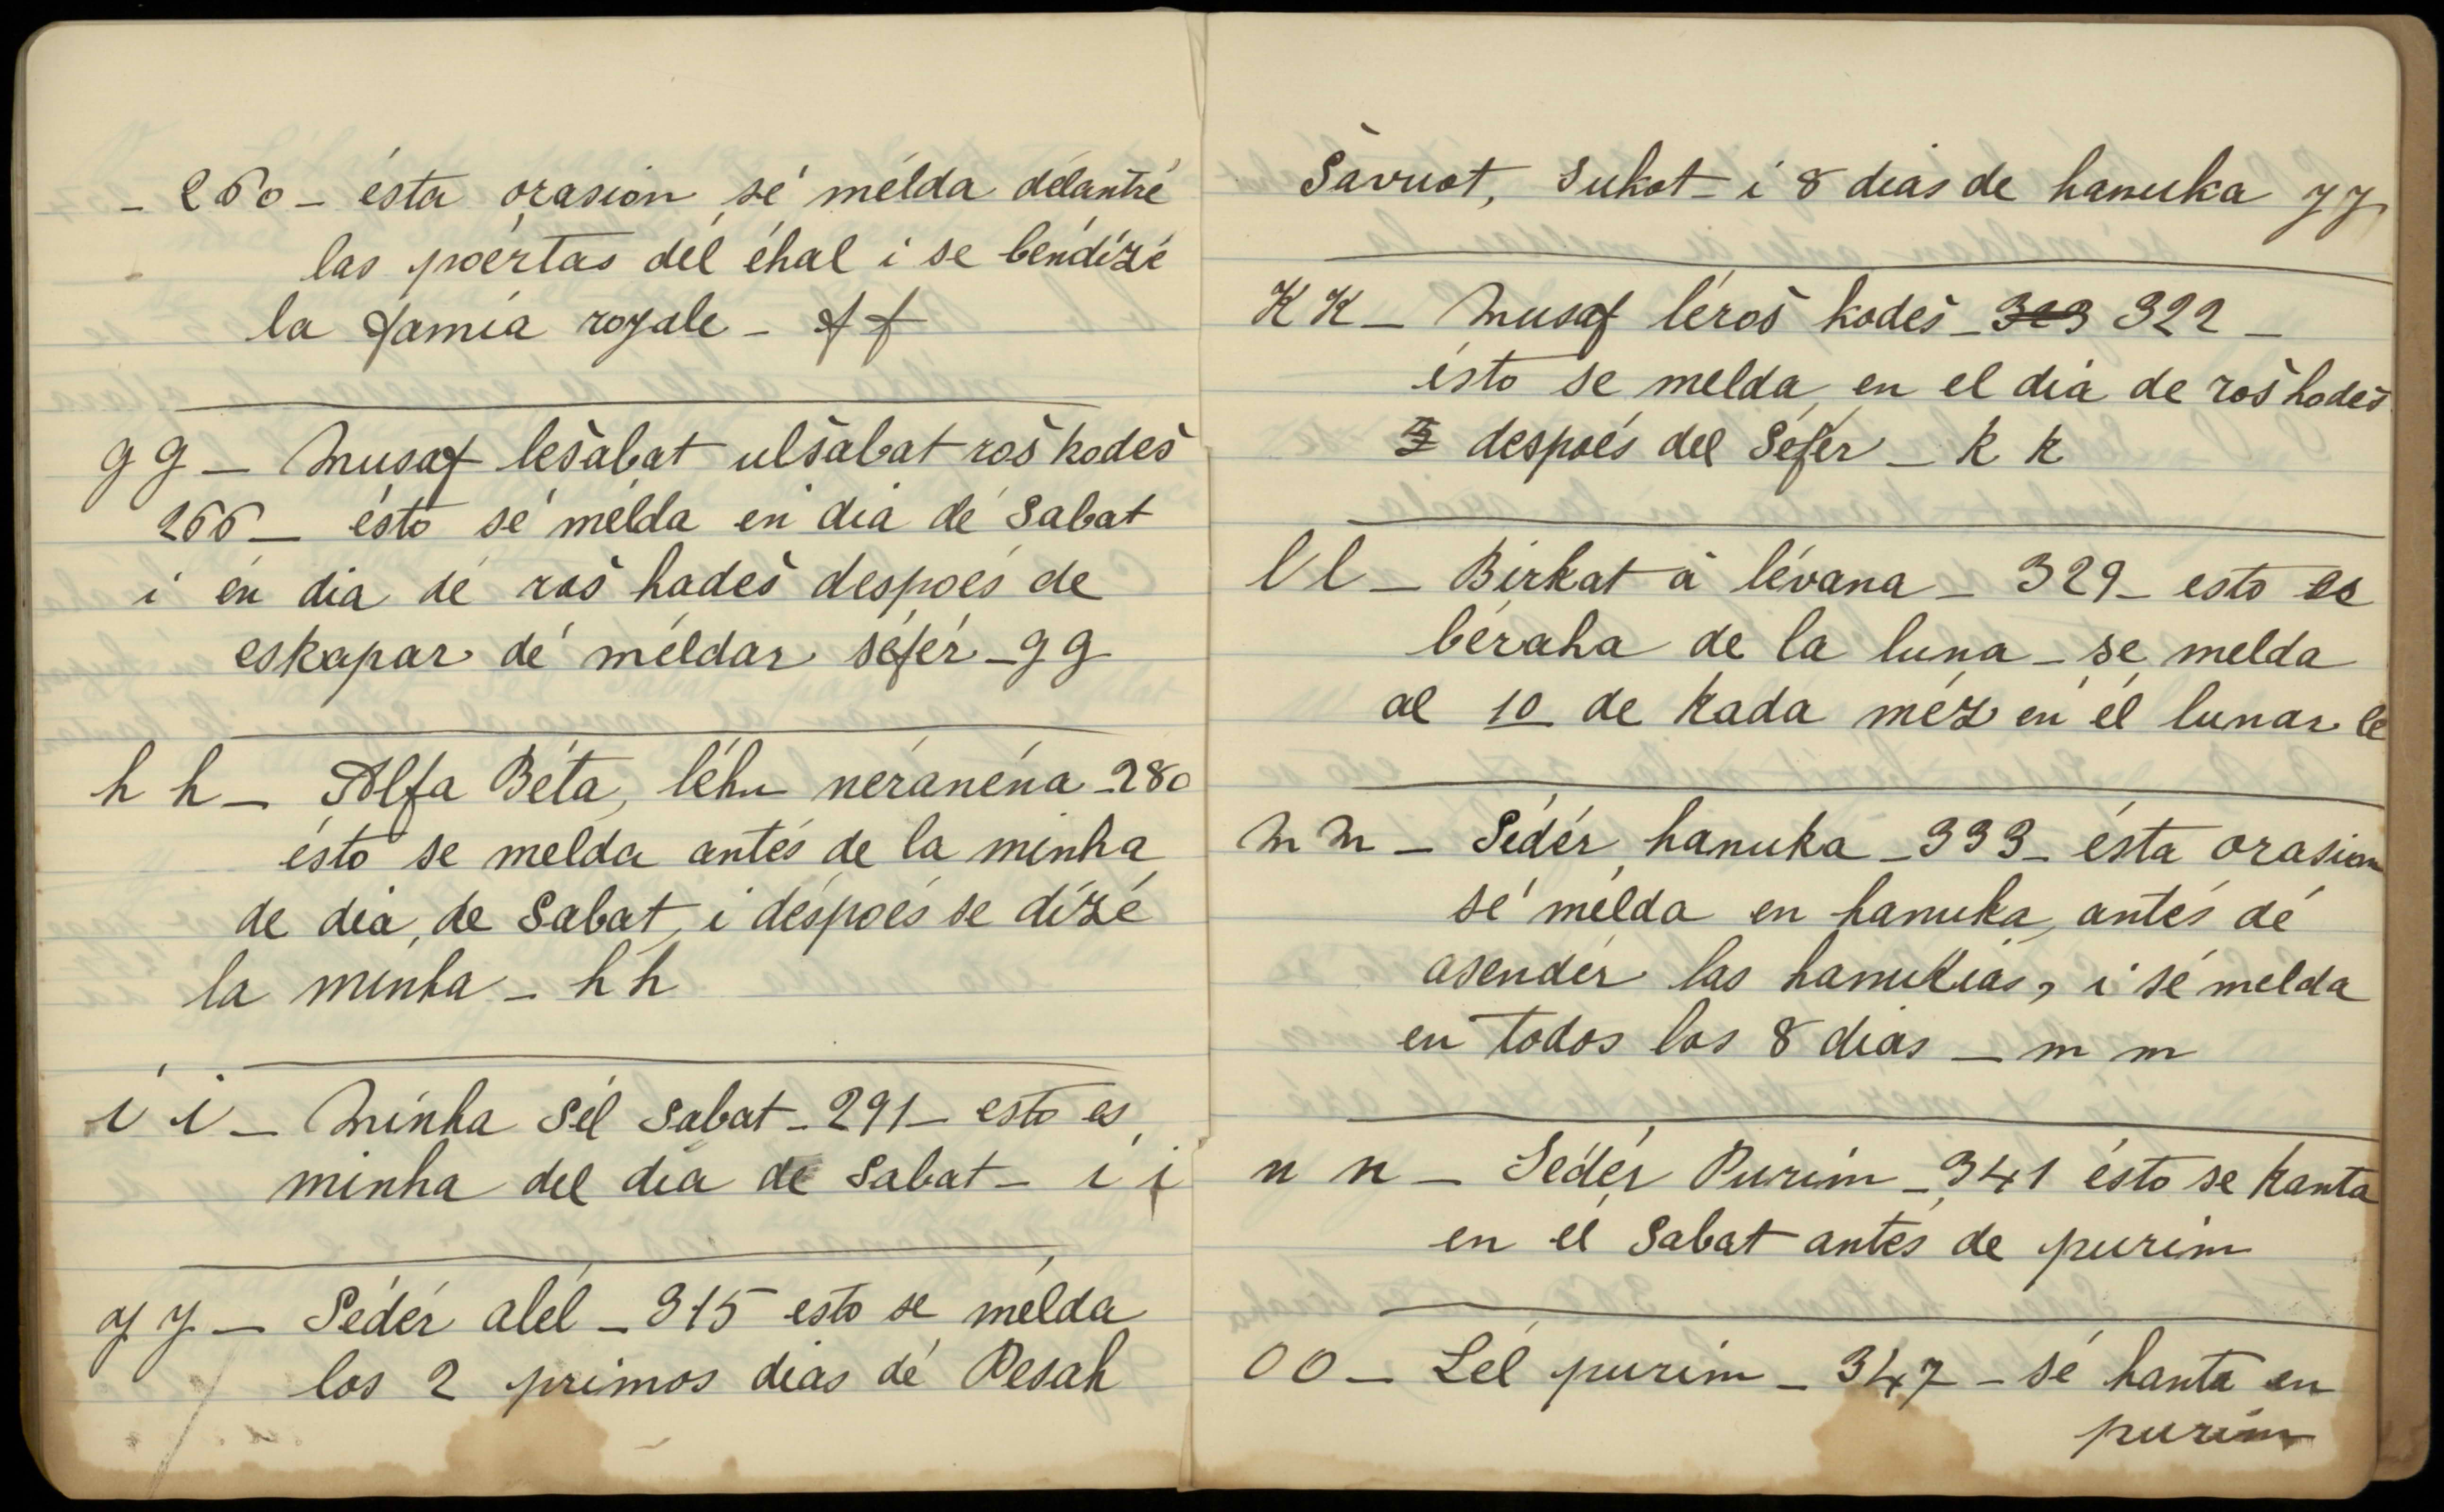 - 260 - ésta orasion sé mélda délantré
las poértas dél éhal i se béndízé
la famía royale - ff
gg - Musaf lešabat ulšabat roš hodeš
266 - ésto sé mélda en dia dé Šabat
i én dia dé roš hodeš despoés de
eskapar dé méldar séfér - gg
h h - Alfa Béta, léhu néranéna - 280
ésto se melda antés de la minha
de dia, de Šabat, i déspoés se dízé
la minha - h h
i i - Minha Šél Šabat - 291 - esto es
minha del dia de Šabat - i i
y y - Sédér alél - 315 esto se mélda
los 2 primos dias dé Pesah
Šavuot, Sukot - i 8 dias de hanuka y y
K K - Musaf léroš hodeš - 323 322 -
ésto se melda en el dia de roš hodeš
despoés del Séfér - k k
l l - Birkat a lévana - 329 - esto es
béraha de la luna - se melda
al 10 de kada méz en él lunar ll
m m - Sédér hanuka - 333 - ésta orasion
sé mélda en hanuka, antés dé
asendér las hanukias, i sé melda
en todos los 8 dias - m m
n n - Sédér Purim - 341 ésto se kanta
en él Šabat antés de purim
O O - Lél purim - 347 - sé kanta en
purim